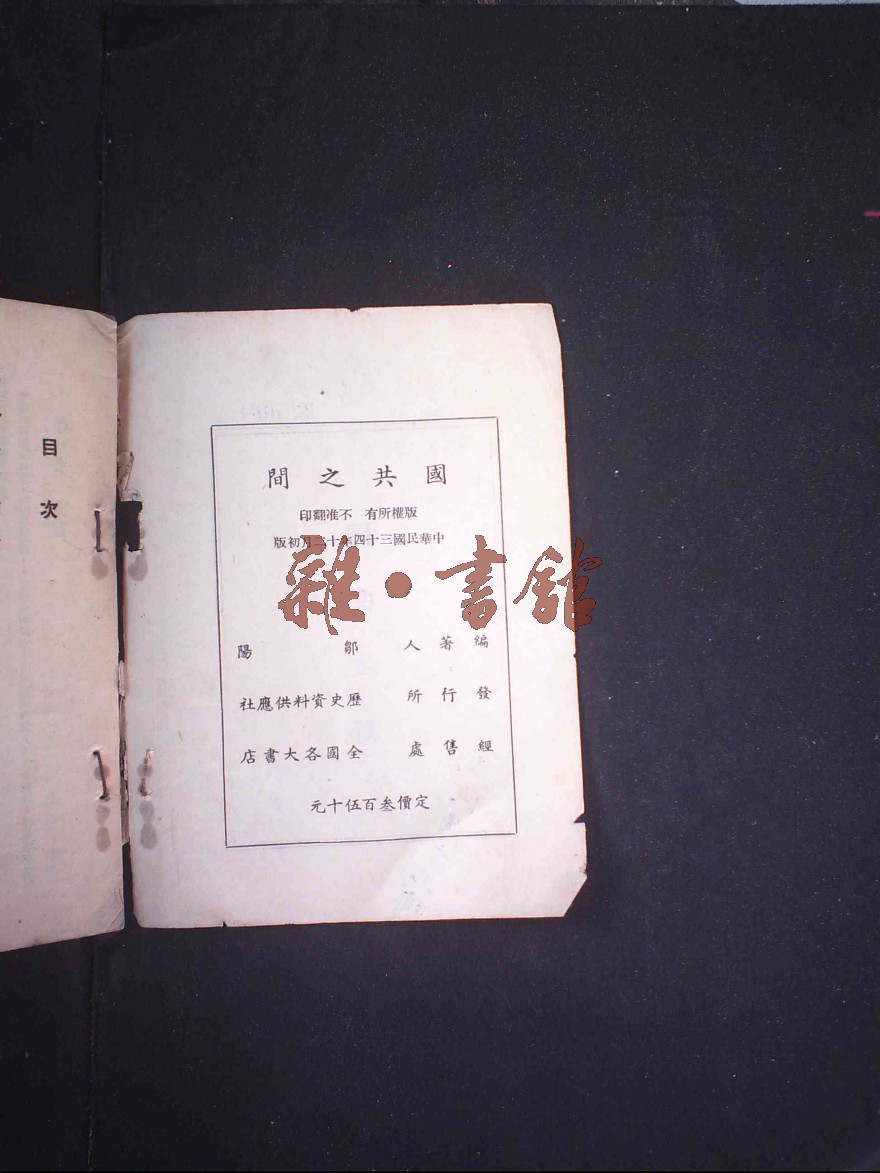 國共之間
版權所有 不准翻印
中華民國三十四年十二月初版
雜·書館
編著人 鄒陽
發行所 歷史資料供應社
經售處 全國各大書店
定價叁百伍十元
目次